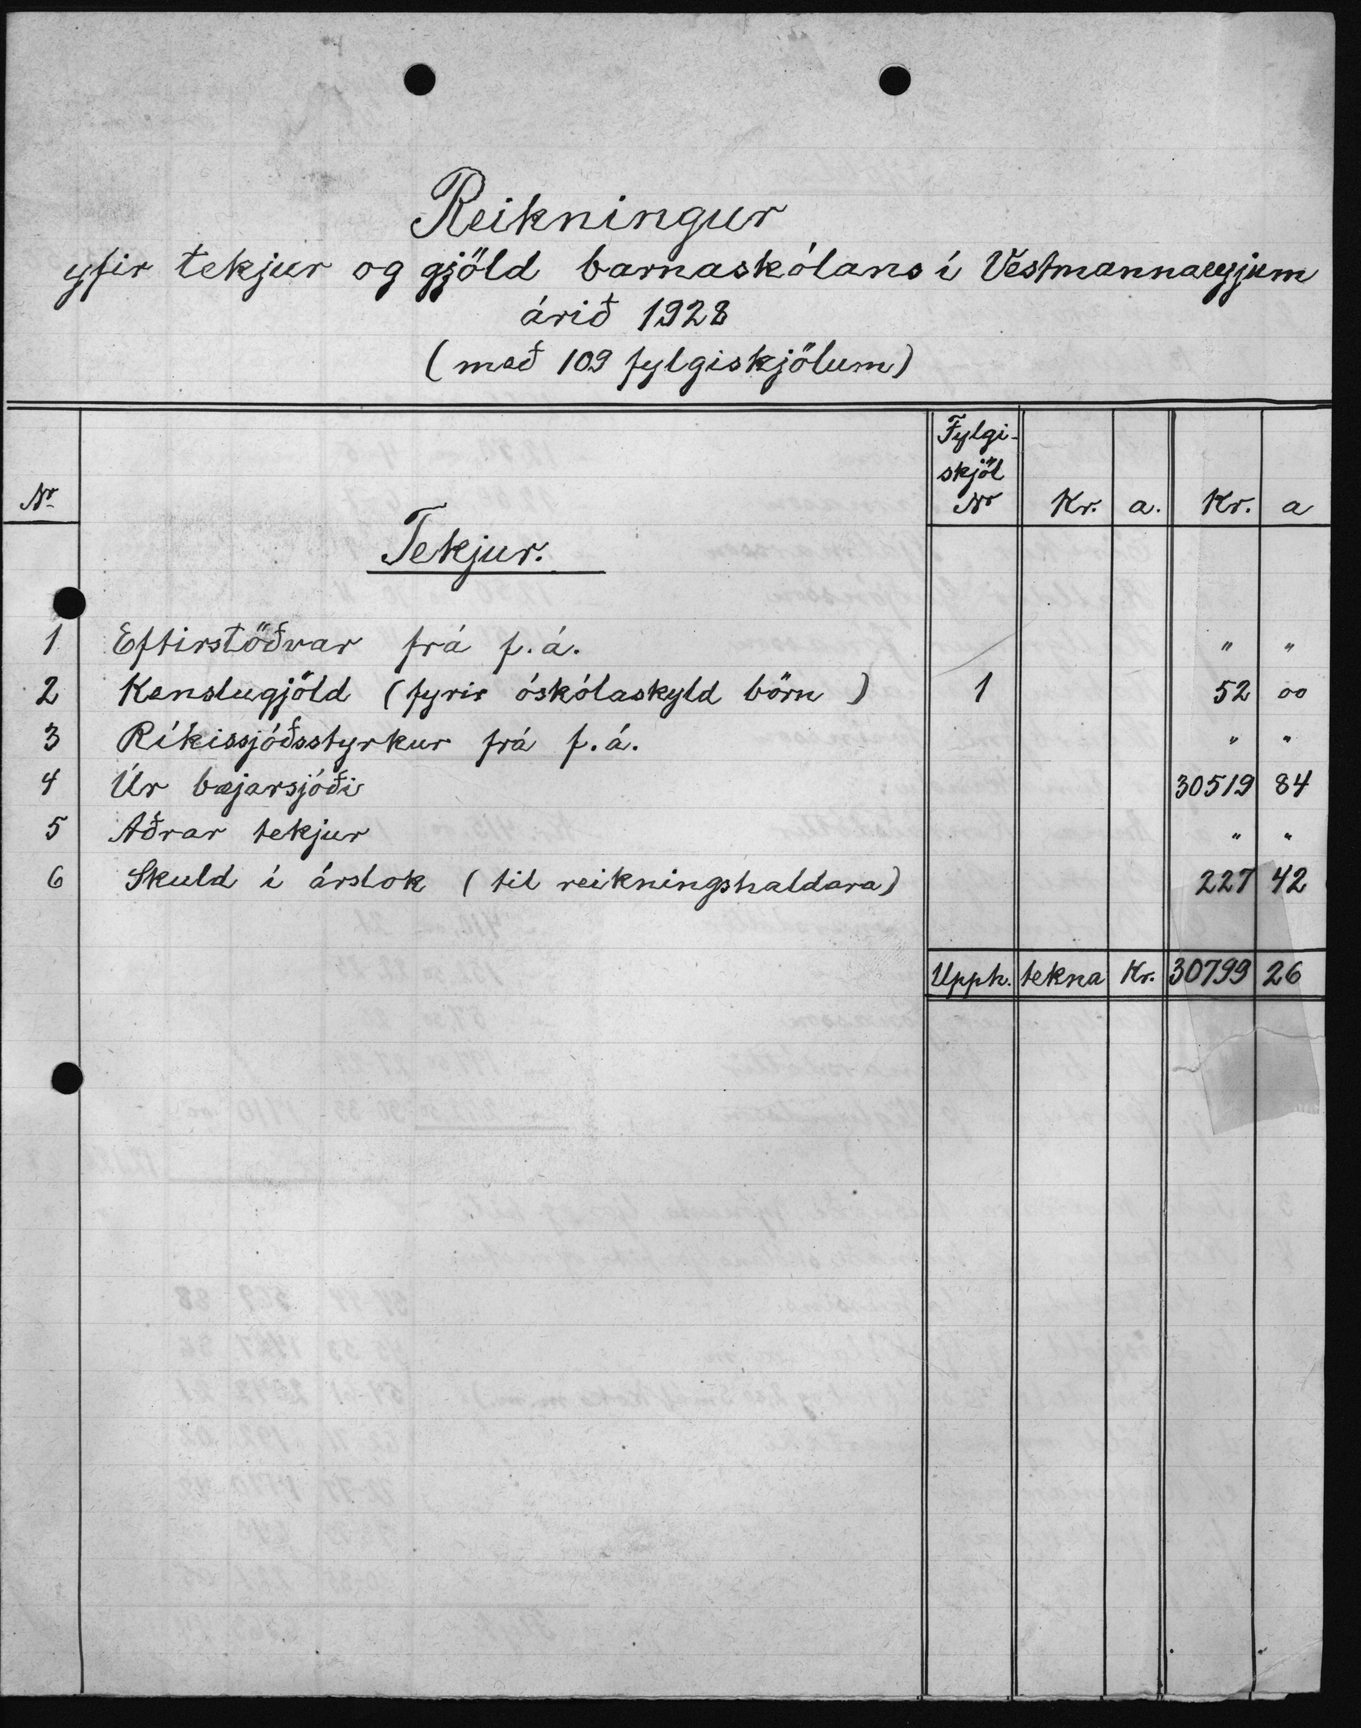 Reikningur
yfir tekjur og gjöld barnaskólans í Vestmannaeyjum
árið 1928
(með 109 fylgiskjölum)
Nr. Fylgi-skjöl Nr Kr. a. Kr. a
Tekjur.
1 Eftirstöðvar frá f.á. " "
2 Kenslugjöld (fyrir óskólaskyld börn) 1 52 00
3 Ríkissjóðsstyrkur frá f.á. " "
4 Úr bæjarsjóði 30519 84
5 Aðrar tekjur " "
6 Skuld í árslok (til reikningshaldara) 227 42
Upph. tekna Kr. 30799 26